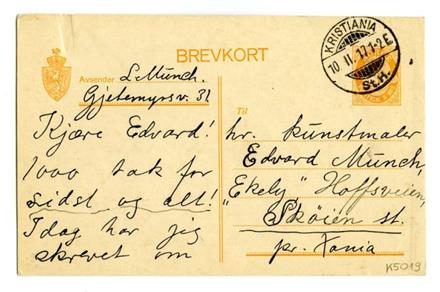 BREVKORT
KRISTIANIA
10. II. 17. 1-2 E
St.H.
Avsender L. Munch.
Gjetemyrsv. 31
Kjære Edvard!
1000 tak for
sidst og alt!
Idag har jeg
skrevet om
Til
hr. kunstmaler
Edvard Munch,
"Ekely" Hoffsveien,
Skøien st.
pr. Xania
K5019